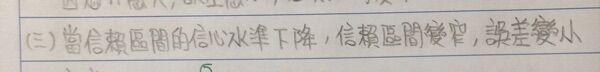 (三)當信賴區間的信心水準下降,信賴區間變窄,誤差變小